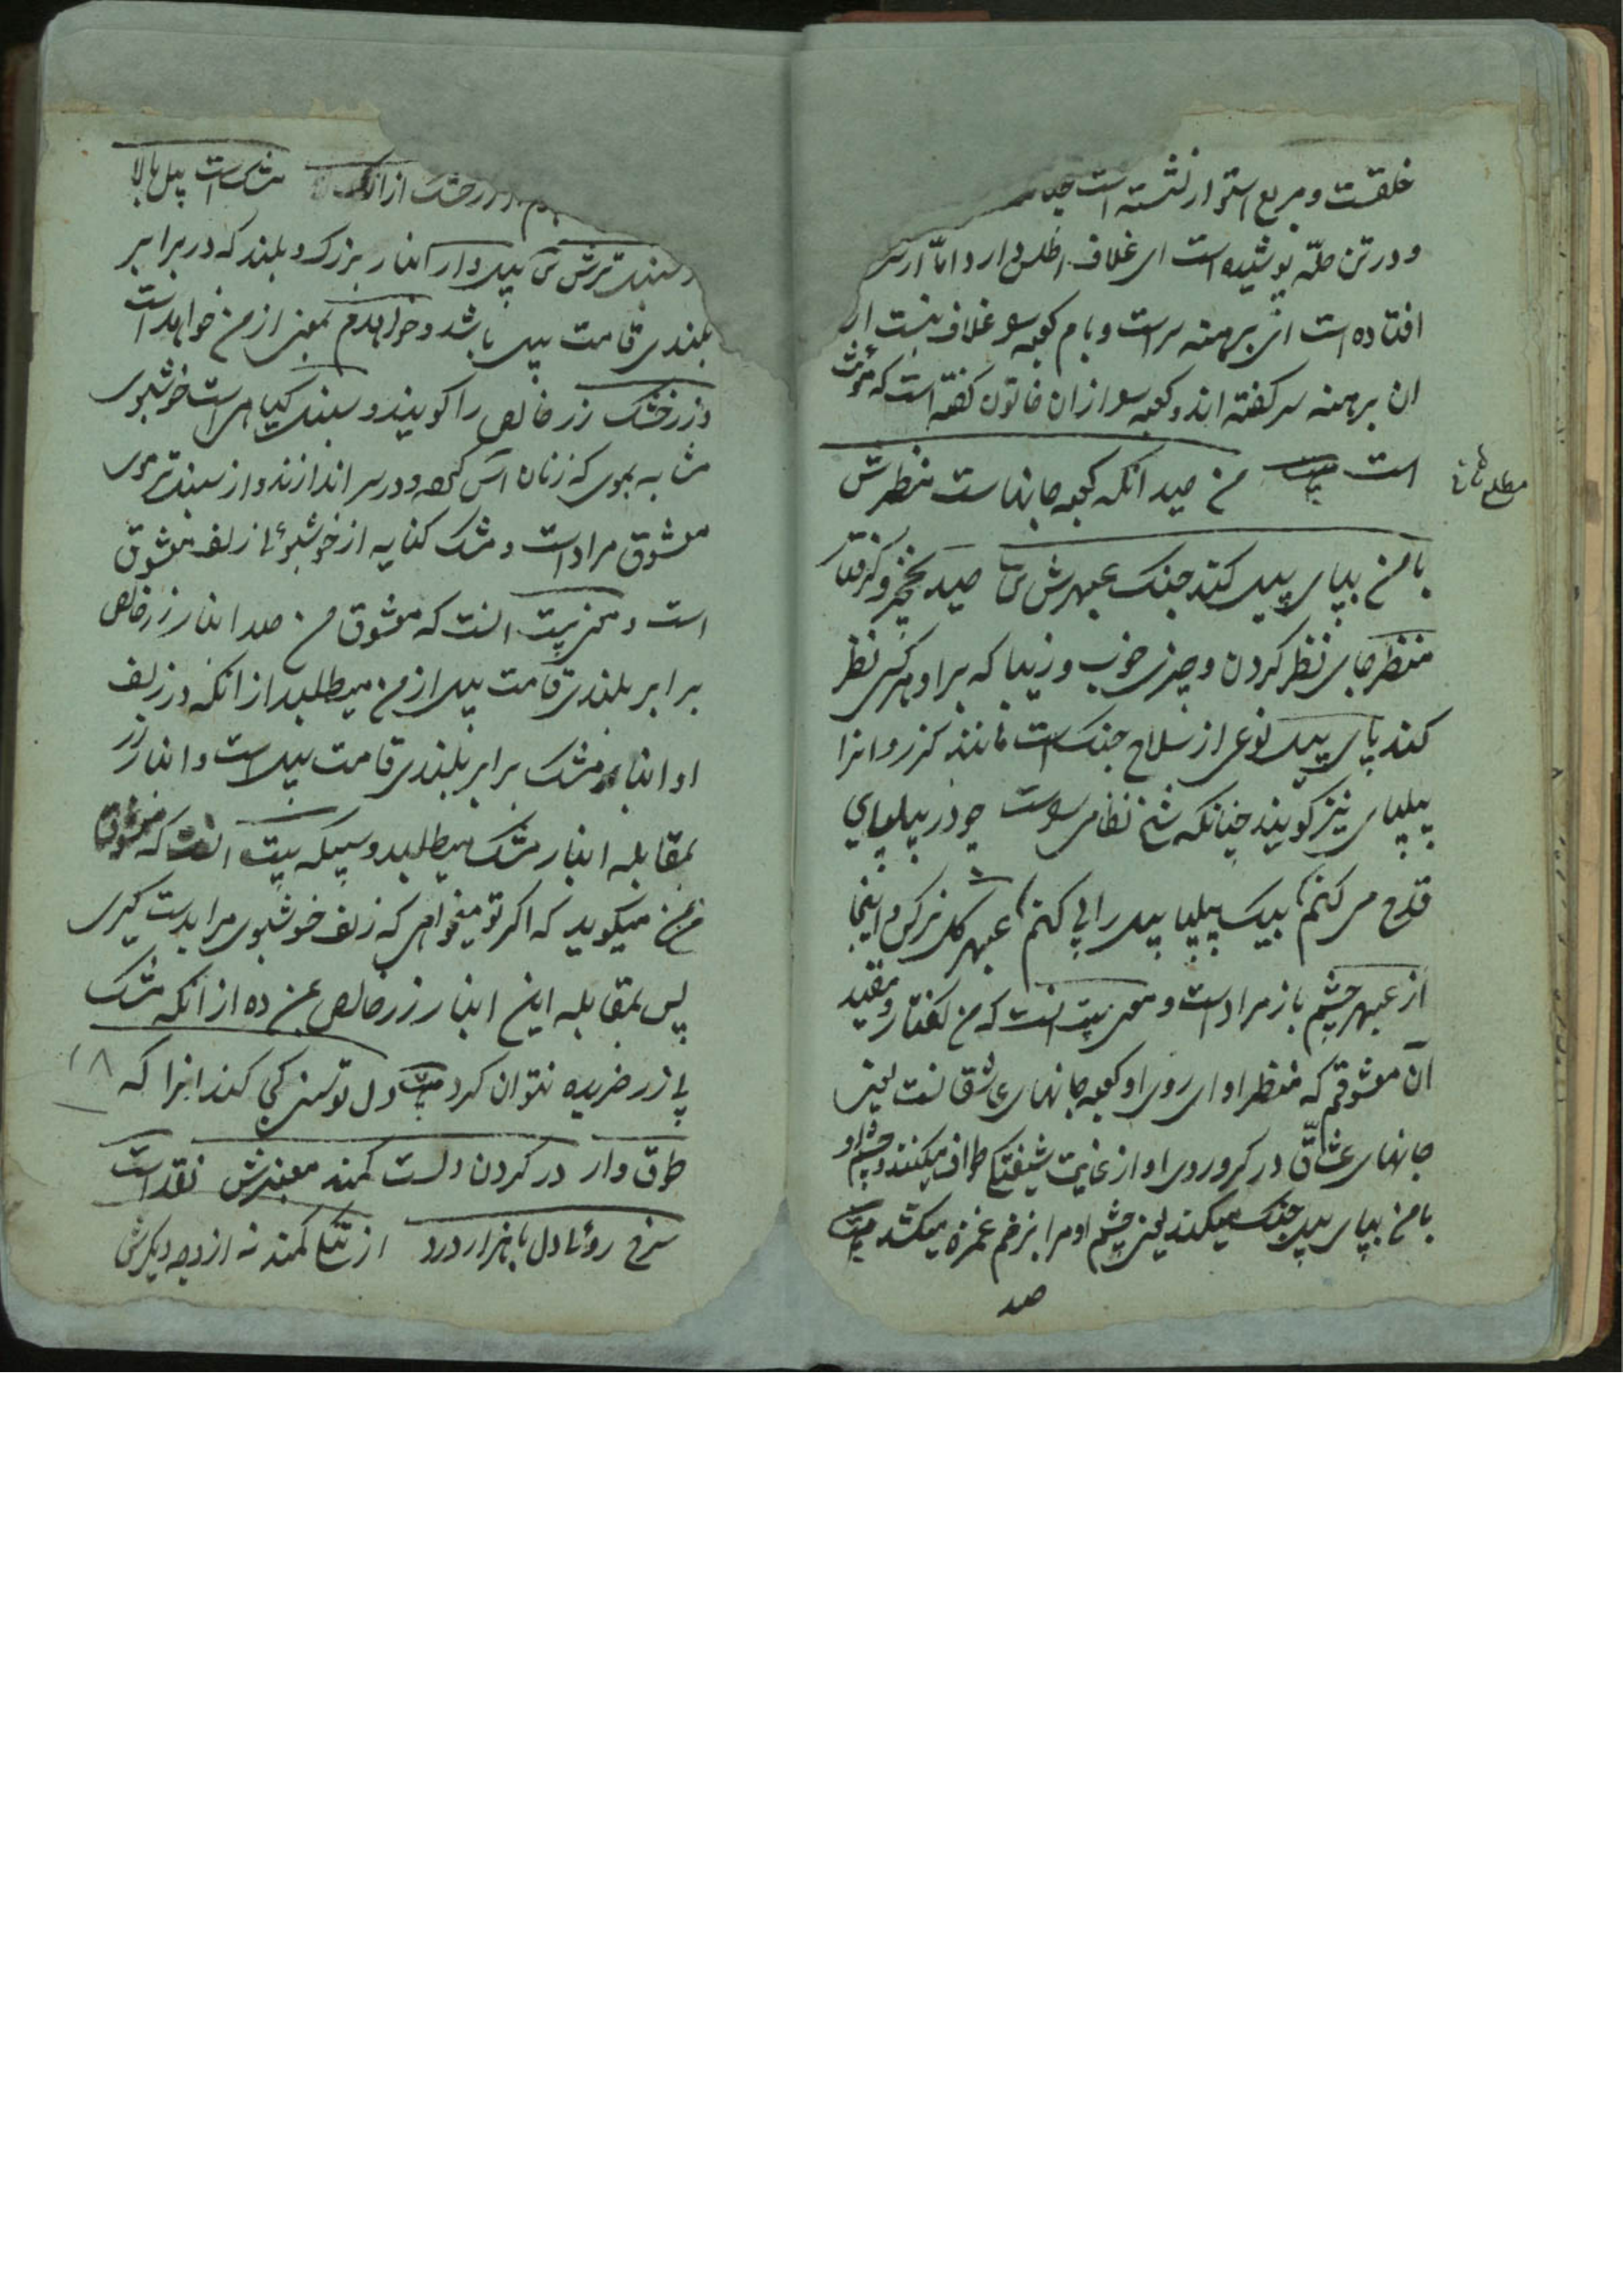 خلقت و مربع استوار نشسته است
و در تن حلّه پوشیده است ای غلاف اطلس دارد امّا از سر
افتاده است ای برهنه سر است و بام کعبه سو غلاف نیست از
ان برهنه سر کفته اند و کعبه سو از ان خاتون کفته است که مؤنث
است بیت من صید انکه کعبه جانهاست منظرش
مطلع ثانی
با من بپای پیل کند جنک عبهرش ش صید نخچیر و کرفتار
منظر جای نظر کردن و چیزی خوب و زیبا که برو هر کس نظر
کند پای پیل نوعی از سلاح جنک است مانند کرز و انرا
پیلپای نیز کویند چنانکه شیخ نظامی سوست چو در پیلپای
قدح می کنم بیک پیلپا پیل را پی کنم عبهر کل نرکس و اینجا
از عبهر چشم یار مراد است و معنی بیت انست که من کفتار و مقید
آن معشوقم که منظر او ای روی او کعبه جانهای عاشقانست یعنی
جانهای عشاق در کرد روی او از غایت شیفتکی طواف میکنند و چشم او
با من بپای پیل جنک میکند یعنی چشم او مرا بزخم غمزه میکشد بیت
صد
زر خشک از انکه مشک است پیل بالا
سنبل ترش ش پیل وار انبار بزرک و بلند که در برابر
بلندی قامت پیل باشد و خواهدم بمعنی از من خواهد است
و زر خشک زر خالص را کویند و سنبل کیاهی است خوشبوی
مشابه بموی که زنان اس کرده در سر اندازند و از سنبل تر موی
معشوق مراد است و مشک کنایه از خوشبوئی زلف معشوق
است و معنی بیت انست که معشوق من صد انبار زر خالص
برابر بلندی قامت پیل از من میطلبد از انکه در زلف
او انبار مشک برابر بلندی قامت پیل است و انبار زر
بمقابله انبار مشک میطلبد و سیکه بیت انست که معشوق
من میکوید که اکر تو میخواهی که زلف خوشبوی مرا بدست کیری
پس بمقابله این انبار زر خالص بمن ده از انکه مشک
بی زر خریده نتوان کرد بیت دل توسنی کجا کند انرا که
۱۸
طوق وار در کردن دلست کمند معنبرش نقد است
سرخ روئی دل با هزار درد از تنکی کمند نه از وجه دیکرش